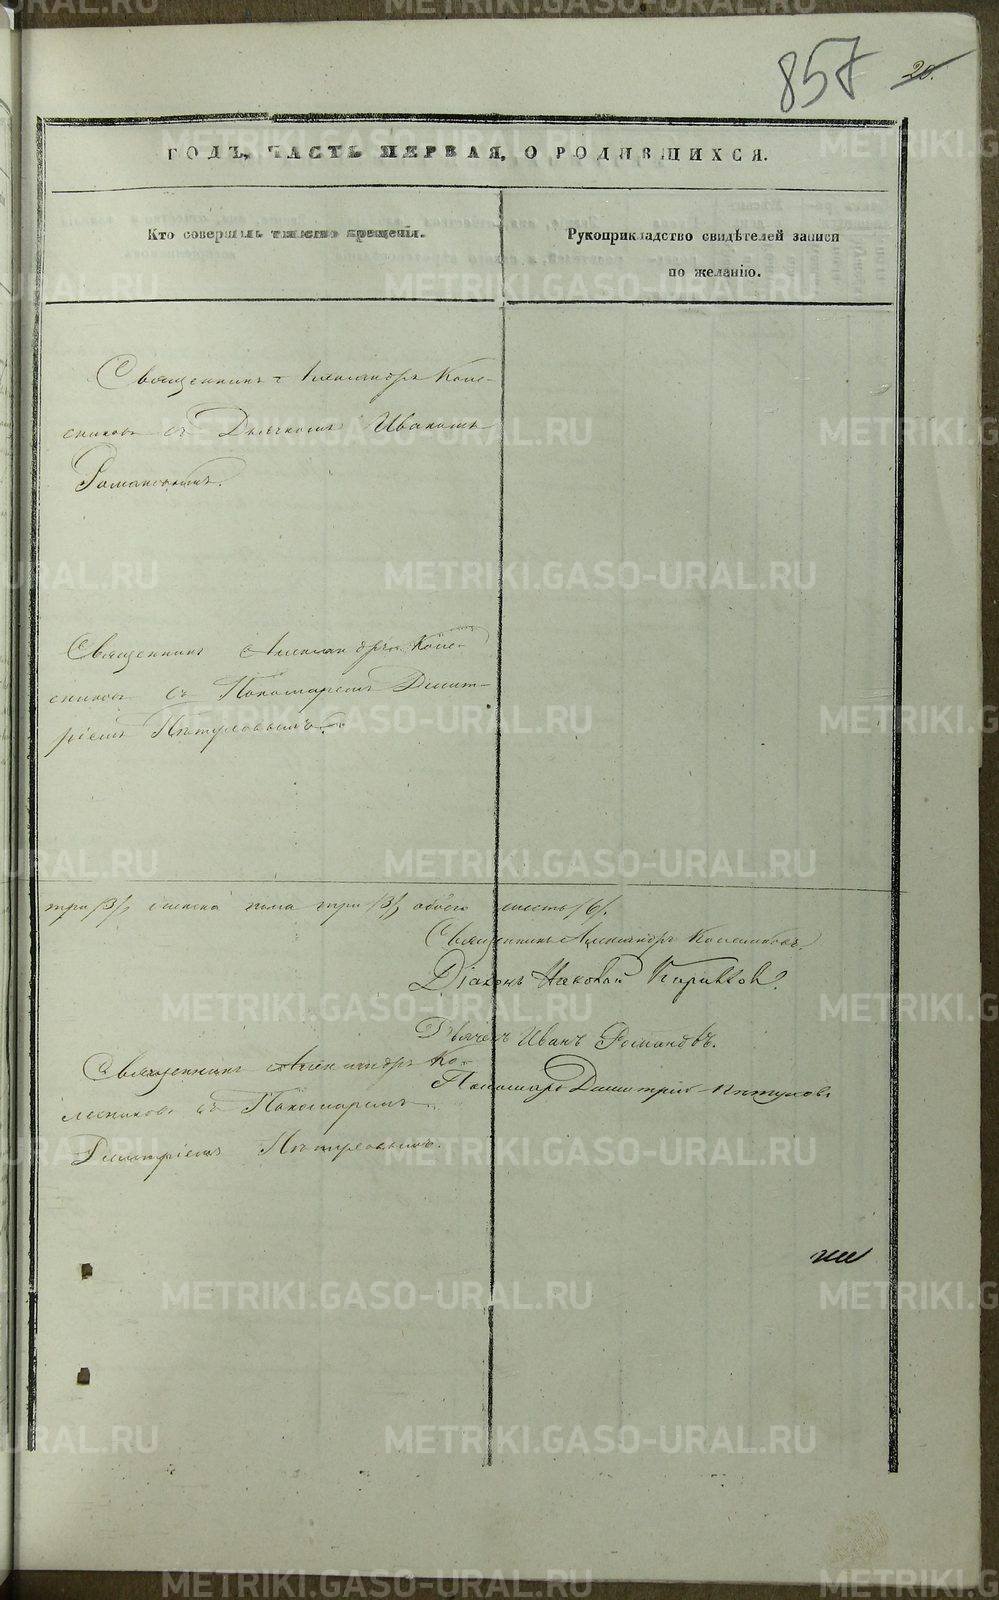 857 20.
ГОДЪ, ЧАСТЬ ПЕРВАЯ, О РОДИВШИХСЯ.
Кто совершалъ таинство крещенія.
Рукоприкладство свидѣтелей записи
по желанію.
Священникъ Александръ Коле-
сниковъ съ Дьячкомъ Иваномъ
Романовымъ.
Священникъ Александръ Коле-
сниковъ съ Пономаремъ Димит-
ріемъ Пѣтуховымъ.
три /3/ женска пола три /3/ обоего шесть /6/.
Священникъ Александръ Колесниковъ.
Діаконъ Николай
Дьячекъ Иванъ Романовъ.
Пономарь Димитрій Пѣтуховъ
Священникъ Александръ Ко-
лесниковъ съ Пономаремъ
Димитріемъ Пѣтуховымъ.
METRIKI.GASO-URAL.RU